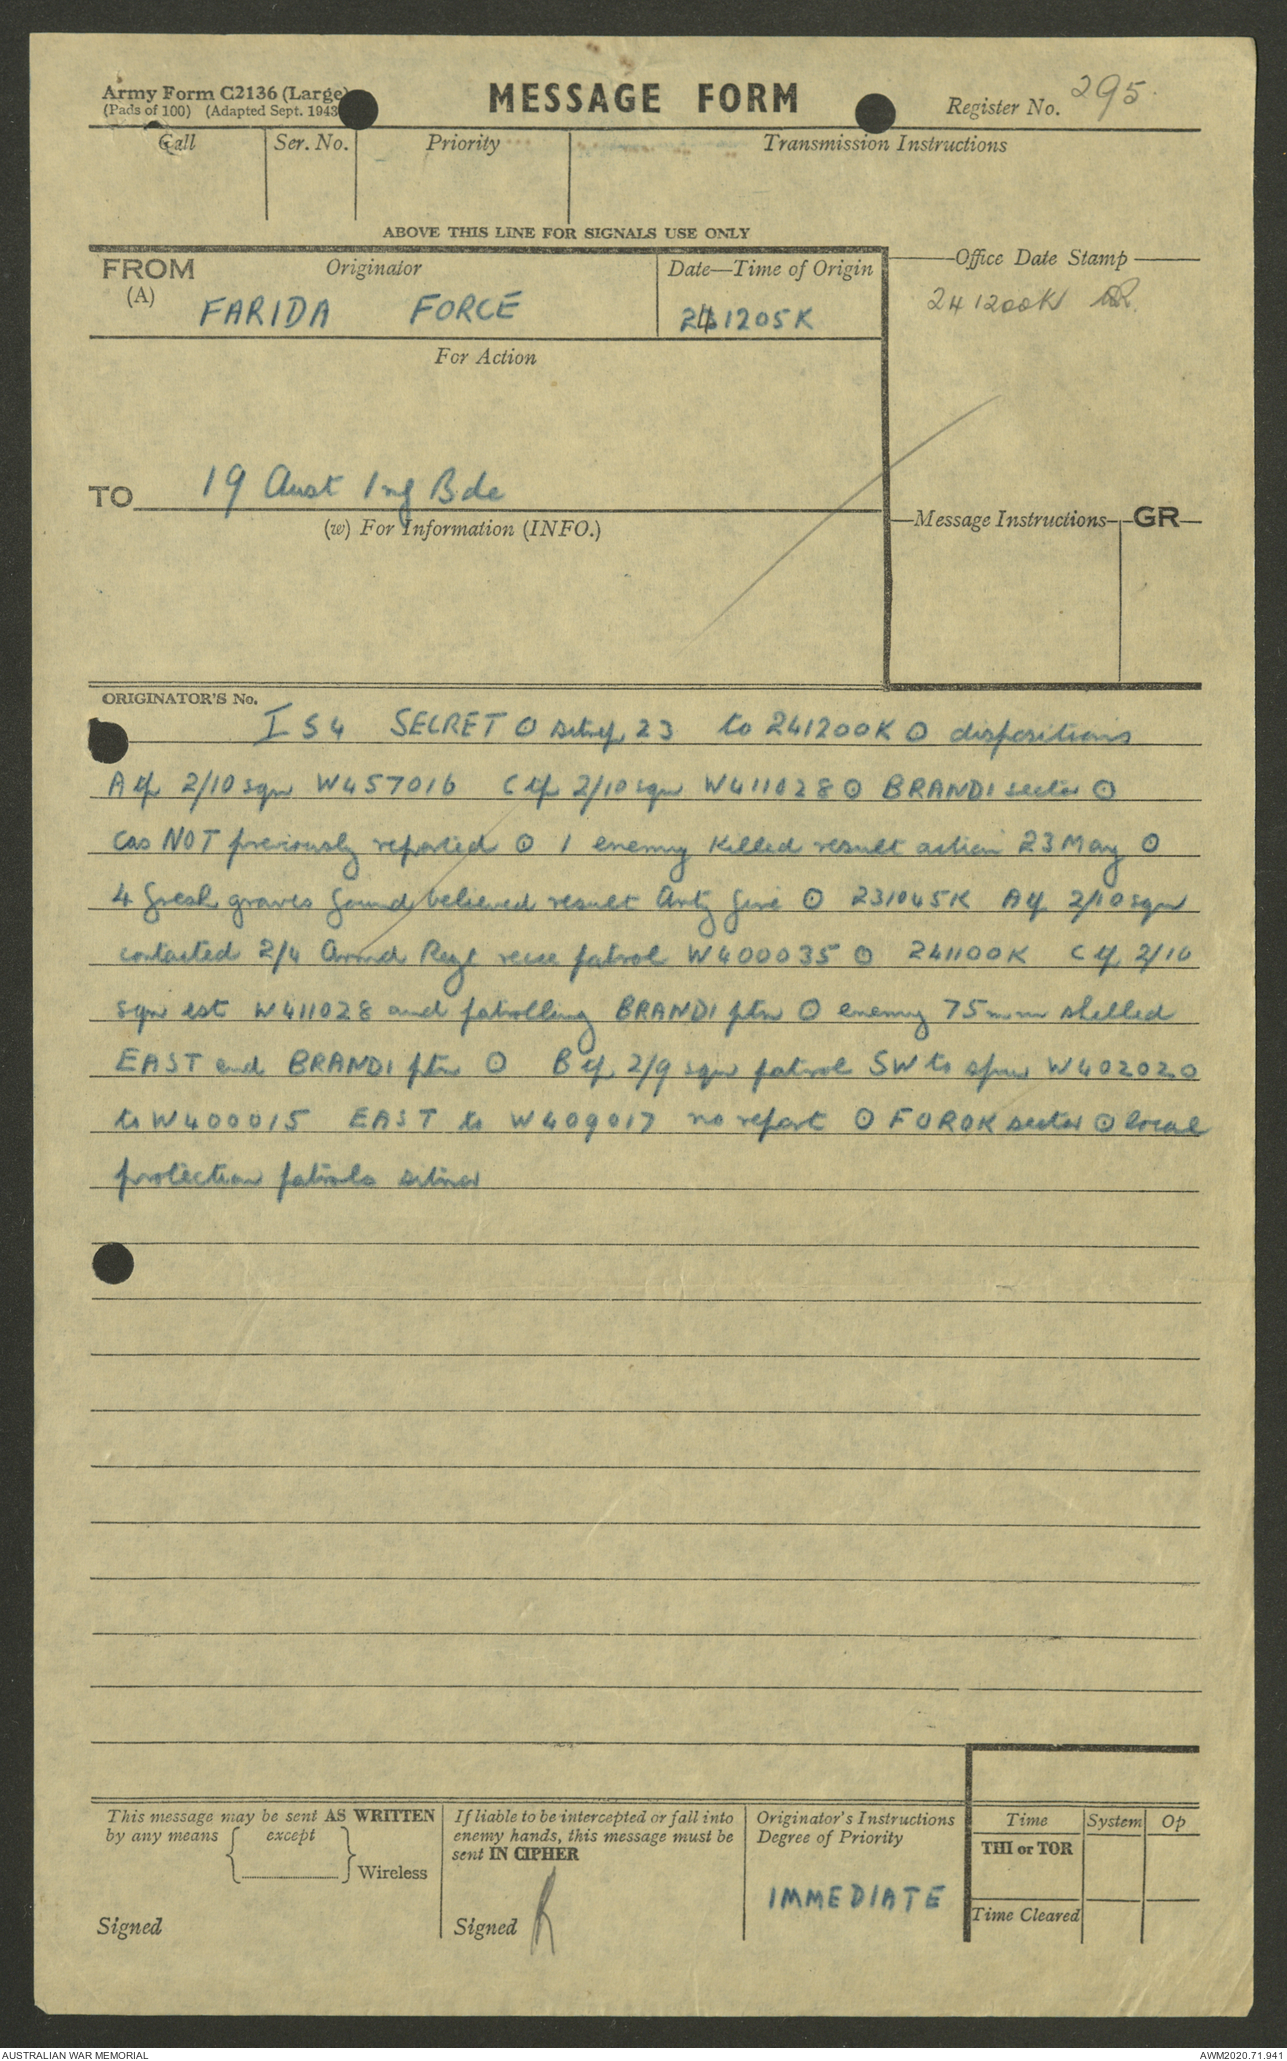 Army Form C2136 (Large)
(Pads of 100) (Adapted Sept. 1943
MESSAGE FORM
Register No. 295
Call Ser. No. Priority Transmission Instructions
ABOVE THIS LINE FOR SIGNALS USE ONLY
FROM Originator Date—Time of Origin Office Date Stamp
(A) FARIDA FORCE 241205K 241200K
For Action
TO 19 Aust Inf Bde
(w) For Information (INFO.) Message Instructions GR
ORIGINATOR'S No.
I S4 SECRET ⊙ sitrep 23 to 241200K ⊙ dispositions
A tp 2/10 sqn W457016 C tp 2/10 sqn W411028 ⊙ BRANDI sector ⊙
cas NOT previously reported ⊙ 1 enemy killed result action 23 May ⊙
4 fresh graves found believed result Arty fire ⊙ 231045K A tp 2/10 sqn
contacted 2/4 Armd Regt recce patrol W400035 ⊙ 241100K C tp 2/10
sqn est W411028 and patrolling BRANDI ptn ⊙ enemy 75mm shelled
EAST end BRANDI ptn ⊙ B tp 2/9 sqn patrol SW to spur W402020
to W400015 EAST to W409017 no report ⊙ FOROK sector ⊙ local
protection patrols active
This message may be sent AS WRITTEN
by any means except
Wireless
Signed
If liable to be intercepted or fall into
enemy hands, this message must be
sent IN CIPHER
Signed
Originator's Instructions
Degree of Priority
IMMEDIATE
Time System Op
THI or TOR
Time Cleared
AUSTRALIAN WAR MEMORIAL AWM2020.71.941